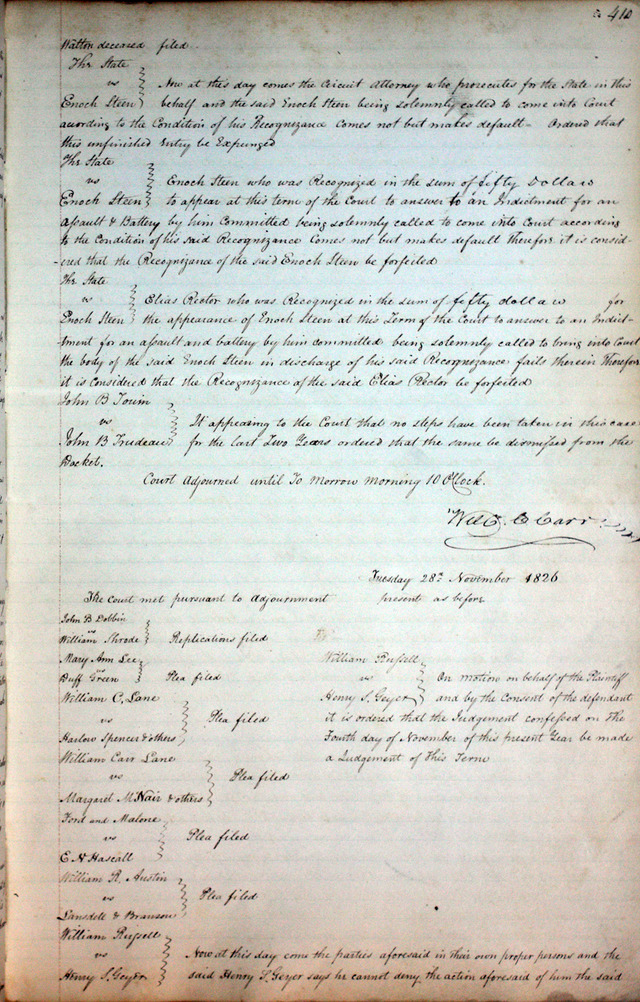 410
Watton deceased filed.
The State
vs
Enoch Steen
Now at this day comes the Circuit Attorney who prosecutes for the State in this
behalf and the said Enoch Steen being solemnly called to come into Court
according to the Condition of his Recognizance comes not but makes default - Ordered that
this unfinished entry be Expunged
The State
vs
Enoch Steen
Enoch Steen who was Recognized in the sum of fifty Dollars
to appear at this term of the Court to answer to an Indictment for an
Assault & Battery by him Committed being solemnly called to come into Court according
to the Condition of his said Recognizance Comes not but makes default Therefore it is consid-
-ered that the Recognizance of the said Enoch Steen be forfeited
The State
vs
Enoch Steen
Elias Rector who was Recognized in the sum of fifty dollars for
the appearance of Enoch Steen at this Term of the Court to answer to an Indict-
-tment for an assault and battery by him committed being solemnly called to bring into Court
the body of the said Enoch Steen in discharge of his said Recognizance fails therein Therefore
it is Considered that the Recognizance of the said Elias Rector be forfeited
John B
vs
John B Trudeau
It appearing to the Court that no steps have been taken in this case
for the last Two Years ordered that the same be dismissed from the
Docket.
Court Adjourned until To Morrow Morning 10 OClock.
Will. C Carr
Tuesday 28th November 1826
The Court met pursuant to adjournment present as before
John B Dobbin
vs
William Shrode
Replications filed
Mary Ann Lee
vs
Duff Green
Plea filed
William C. Lane
vs
Harlow Spencer & others
Plea filed
William Carr Lane
vs
Margaret McNair & others
Plea filed
Ford and Malone
vs
E N Hascall
Plea filed
William R. Austin
vs
Lansdell & Branson
Plea filed
William Russell
vs
Henry S. Geyer
On motion on behalf of the Plaintiff
and by the Consent of the defendant
it is ordered that the Judgement confessed on the
Fourth day of November of this present Year be made
a Judgement of This Term
William Russell
vs
Henry S. Geyer
Now at this day come the parties aforesaid in their own proper persons and the
said Henry S. Geyer says he cannot deny the action aforesaid of him the said